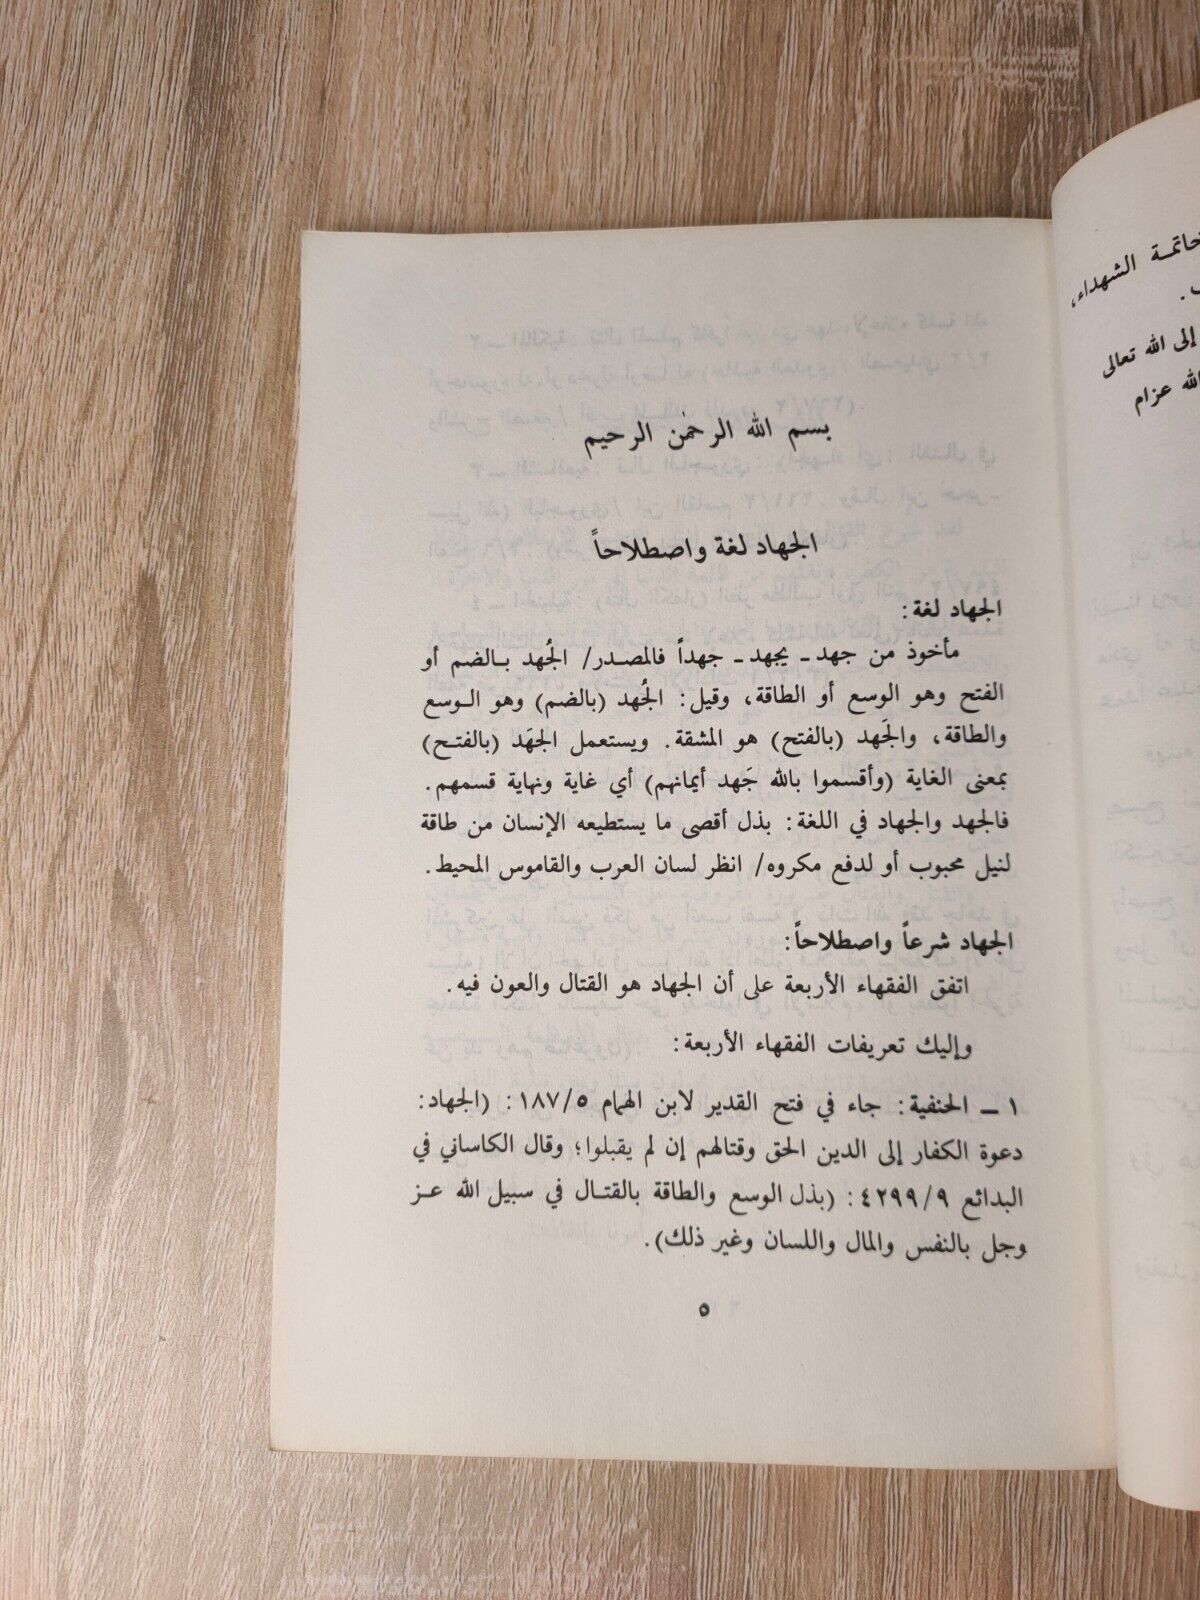 بسم الله الرحمٰن الرحيم
الجهاد لغة واصطلاحاً
الجهاد لغة:
مأخوذ من جهد ـ يجهد ـ جهداً فالمصدر/ الجُهد بالضم أو
الفتح وهو الوسع أو الطاقة، وقيل: الجُهد (بالضم) وهو الوسع
والطاقة، والجَهد (بالفتح) هو المشقة. ويستعمل الجهَد (بالفتح)
بمعنى الغاية (وأقسموا بالله جَهد أيمانهم) أي غاية ونهاية قسمهم.
فالجهد والجهاد في اللغة: بذل أقصى ما يستطيعه الإنسان من طاقة
لنيل محبوب أو لدفع مكروه/ انظر لسان العرب والقاموس المحيط.
الجهاد شرعاً واصطلاحاً:
اتفق الفقهاء الأربعة على أن الجهاد هو القتال والعون فيه.
وإليك تعريفات الفقهاء الأربعة:
١ ـ الحنفية: جاء في فتح القدير لابن الهمام ١٨٧/٥: (الجهاد:
دعوة الكفار إلى الدين الحق وقتالهم إن لم يقبلوا؛ وقال الكاساني في
البدائع ٤٢٩٩/٩: (بذل الوسع والطاقة بالقتال في سبيل الله عز
وجل بالنفس والمال واللسان وغير ذلك).
٥
خاتمة الشهداء،
إلى الله تعالى
الله عزام